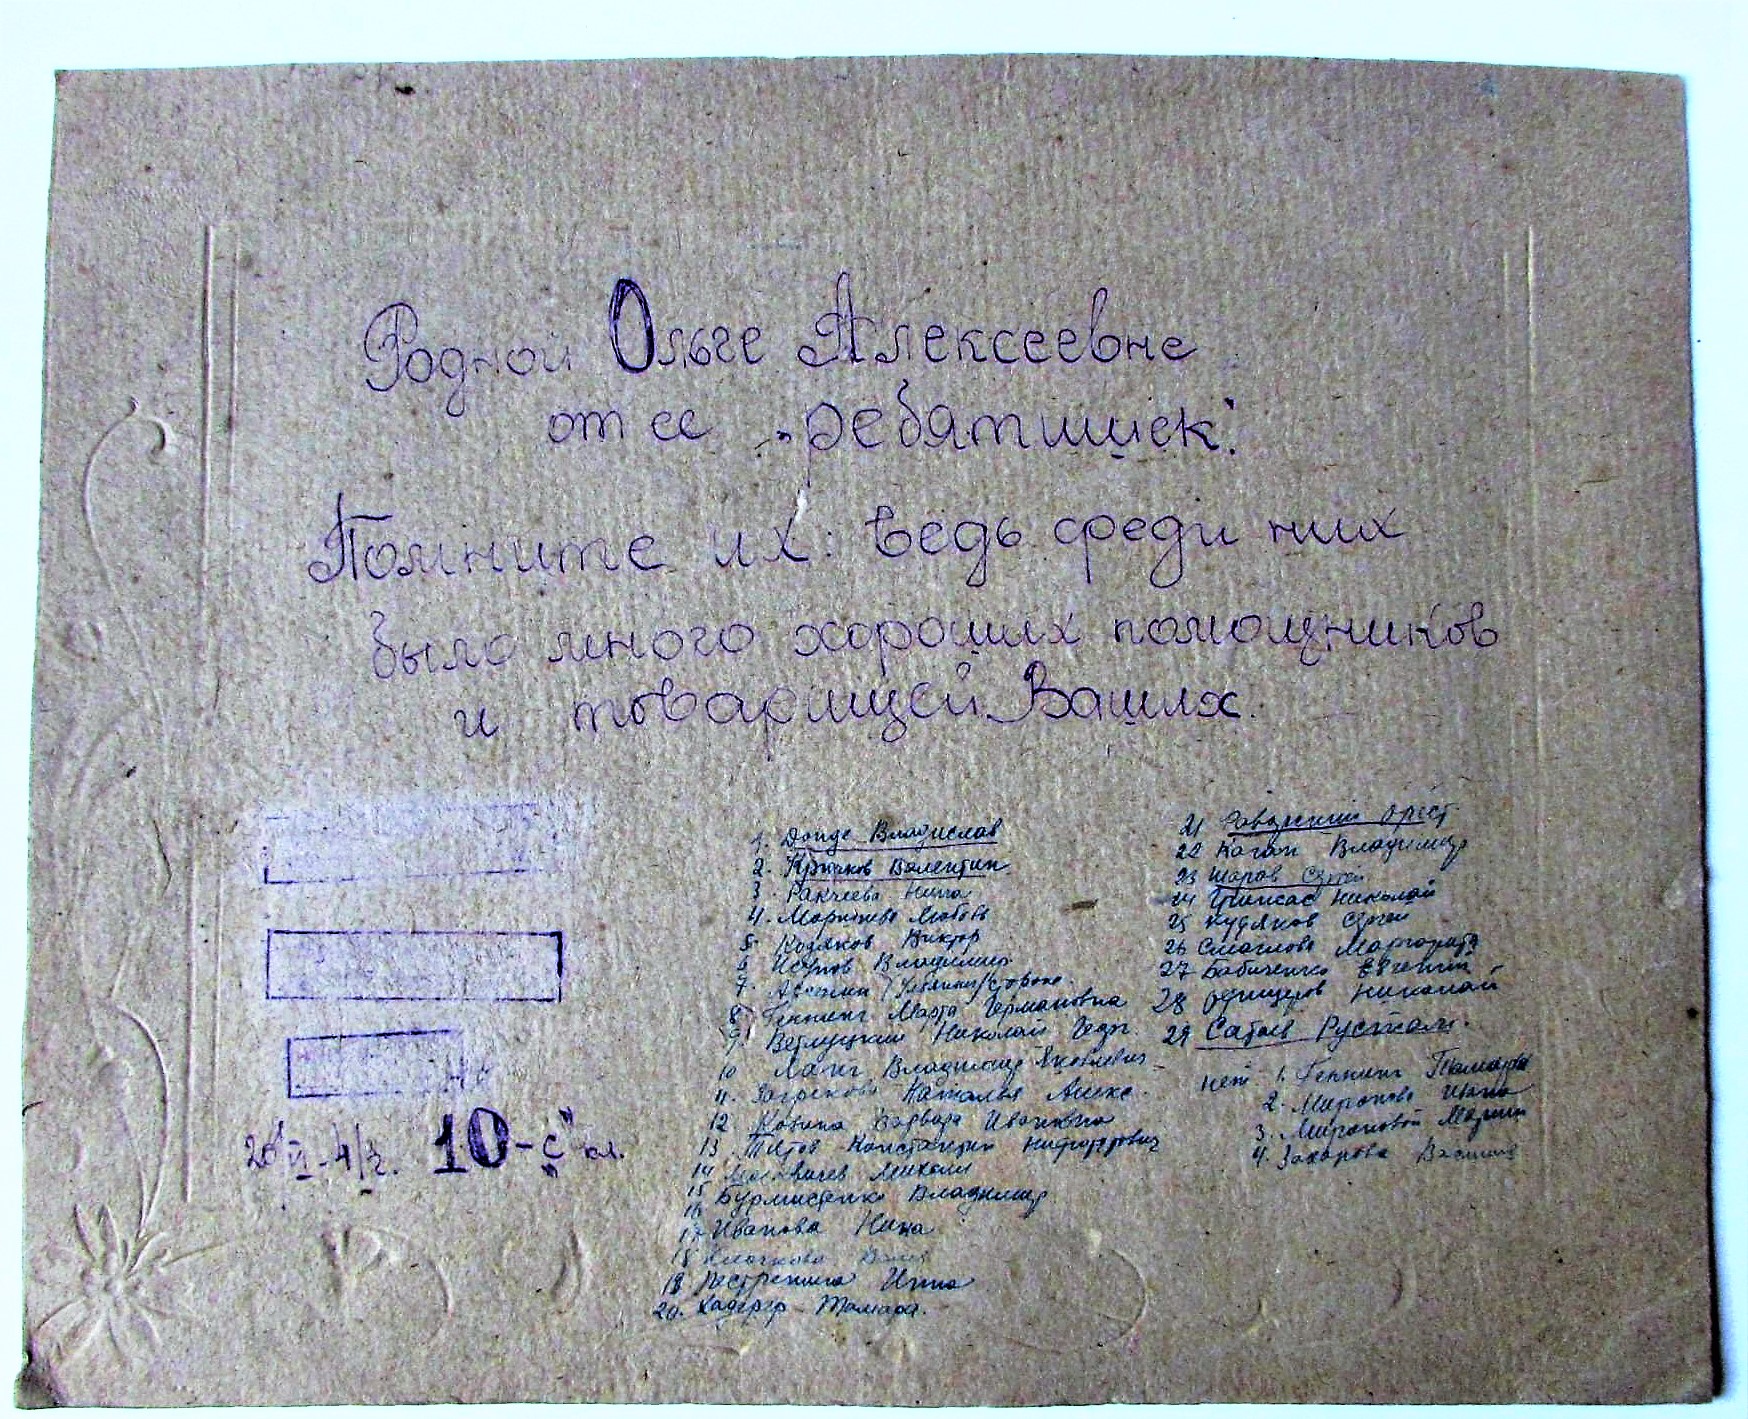 Родной Ольге Алексеевне
от ее „ребятишек".
Помните их: ведь среди них
было много хороших помощников
и товарищей Вашых.
10-„с" кл.
1. Донде Владислав
2. Крючков Валентин
3. Ракчеева Нина
4. Любовь
5. Кодяков Виктор
6 Исупов Владимир
7.
8 Геннинг Марта Германовна
9. Ветлуцкий Николай
10 Ланг Владимир Яковлевич
11. Наталья Алекс.
12 Козина Варвара Ивановна
13. Титов Константин Никифорович
14 Михаил
15 Бурмистенко Владимир
16
17 Иванова Нина
18
19. Нестренина Инна
20. Тамара.
21 Орест
22 Каган Владимир
23 Шаров Сергей
24 Николай
25 Кудяков Сергей
26 Смаглова Маргарита
27 Бабиченко Евгений
28 Офицеров Николай
29 Сатаев Рустам.
нет 1. Геннинг Тамара
2. Миронова
3. Мироновой
4. Захарова